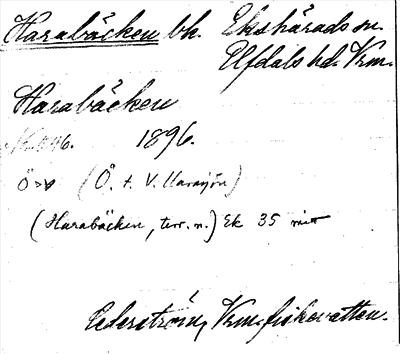 Harabäcken bk. Ekshärads sn.
Elfdals hd. Vrm.
Harabäcken
1896.
Ö>V (Ö. t. V. Harsjön)
(Harabäcken, terr. n.) Ek 35 mitt
Cederström, Vrm. fiskevatten.